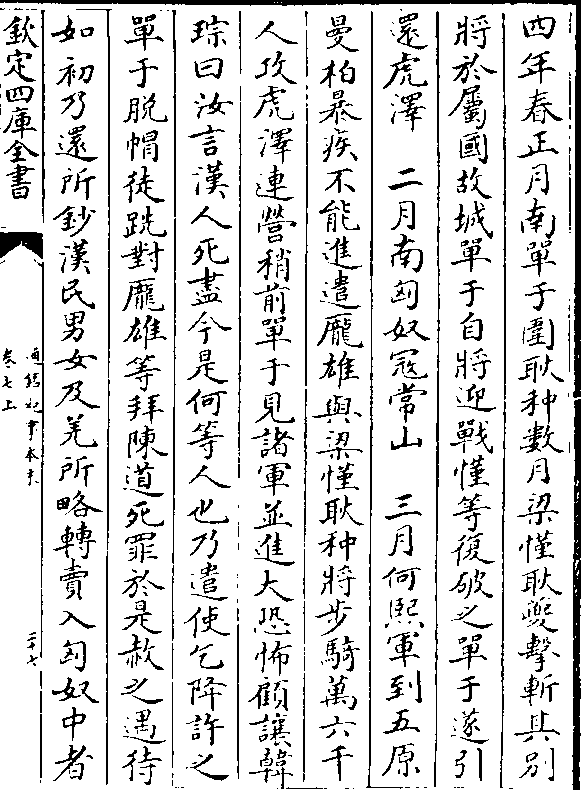 四年春正月南單于圍耿种數月梁慬耿夔擊斬其别
將於屬國故城單于自將迎戰慬等復破之單于遂引
還虎澤　二月南匈奴寇常山　三月何熙軍到五原
曼柏暴疾不能進遣龐雄與梁慬耿种將步騎萬六千
人攻虎澤連營稍前單于見諸軍並進大恐怖顧讓韓
琮曰汝言漢人死盡今是何等人也乃遣使乞降許之
單于脱帽徒跣對龐雄等拜陳道死罪於是赦之遇待
如初乃還所鈔漢民男女及羌所略轉賣入匈奴中者
欽定四庫全書
通鑑紀事本末
卷七上
二十七